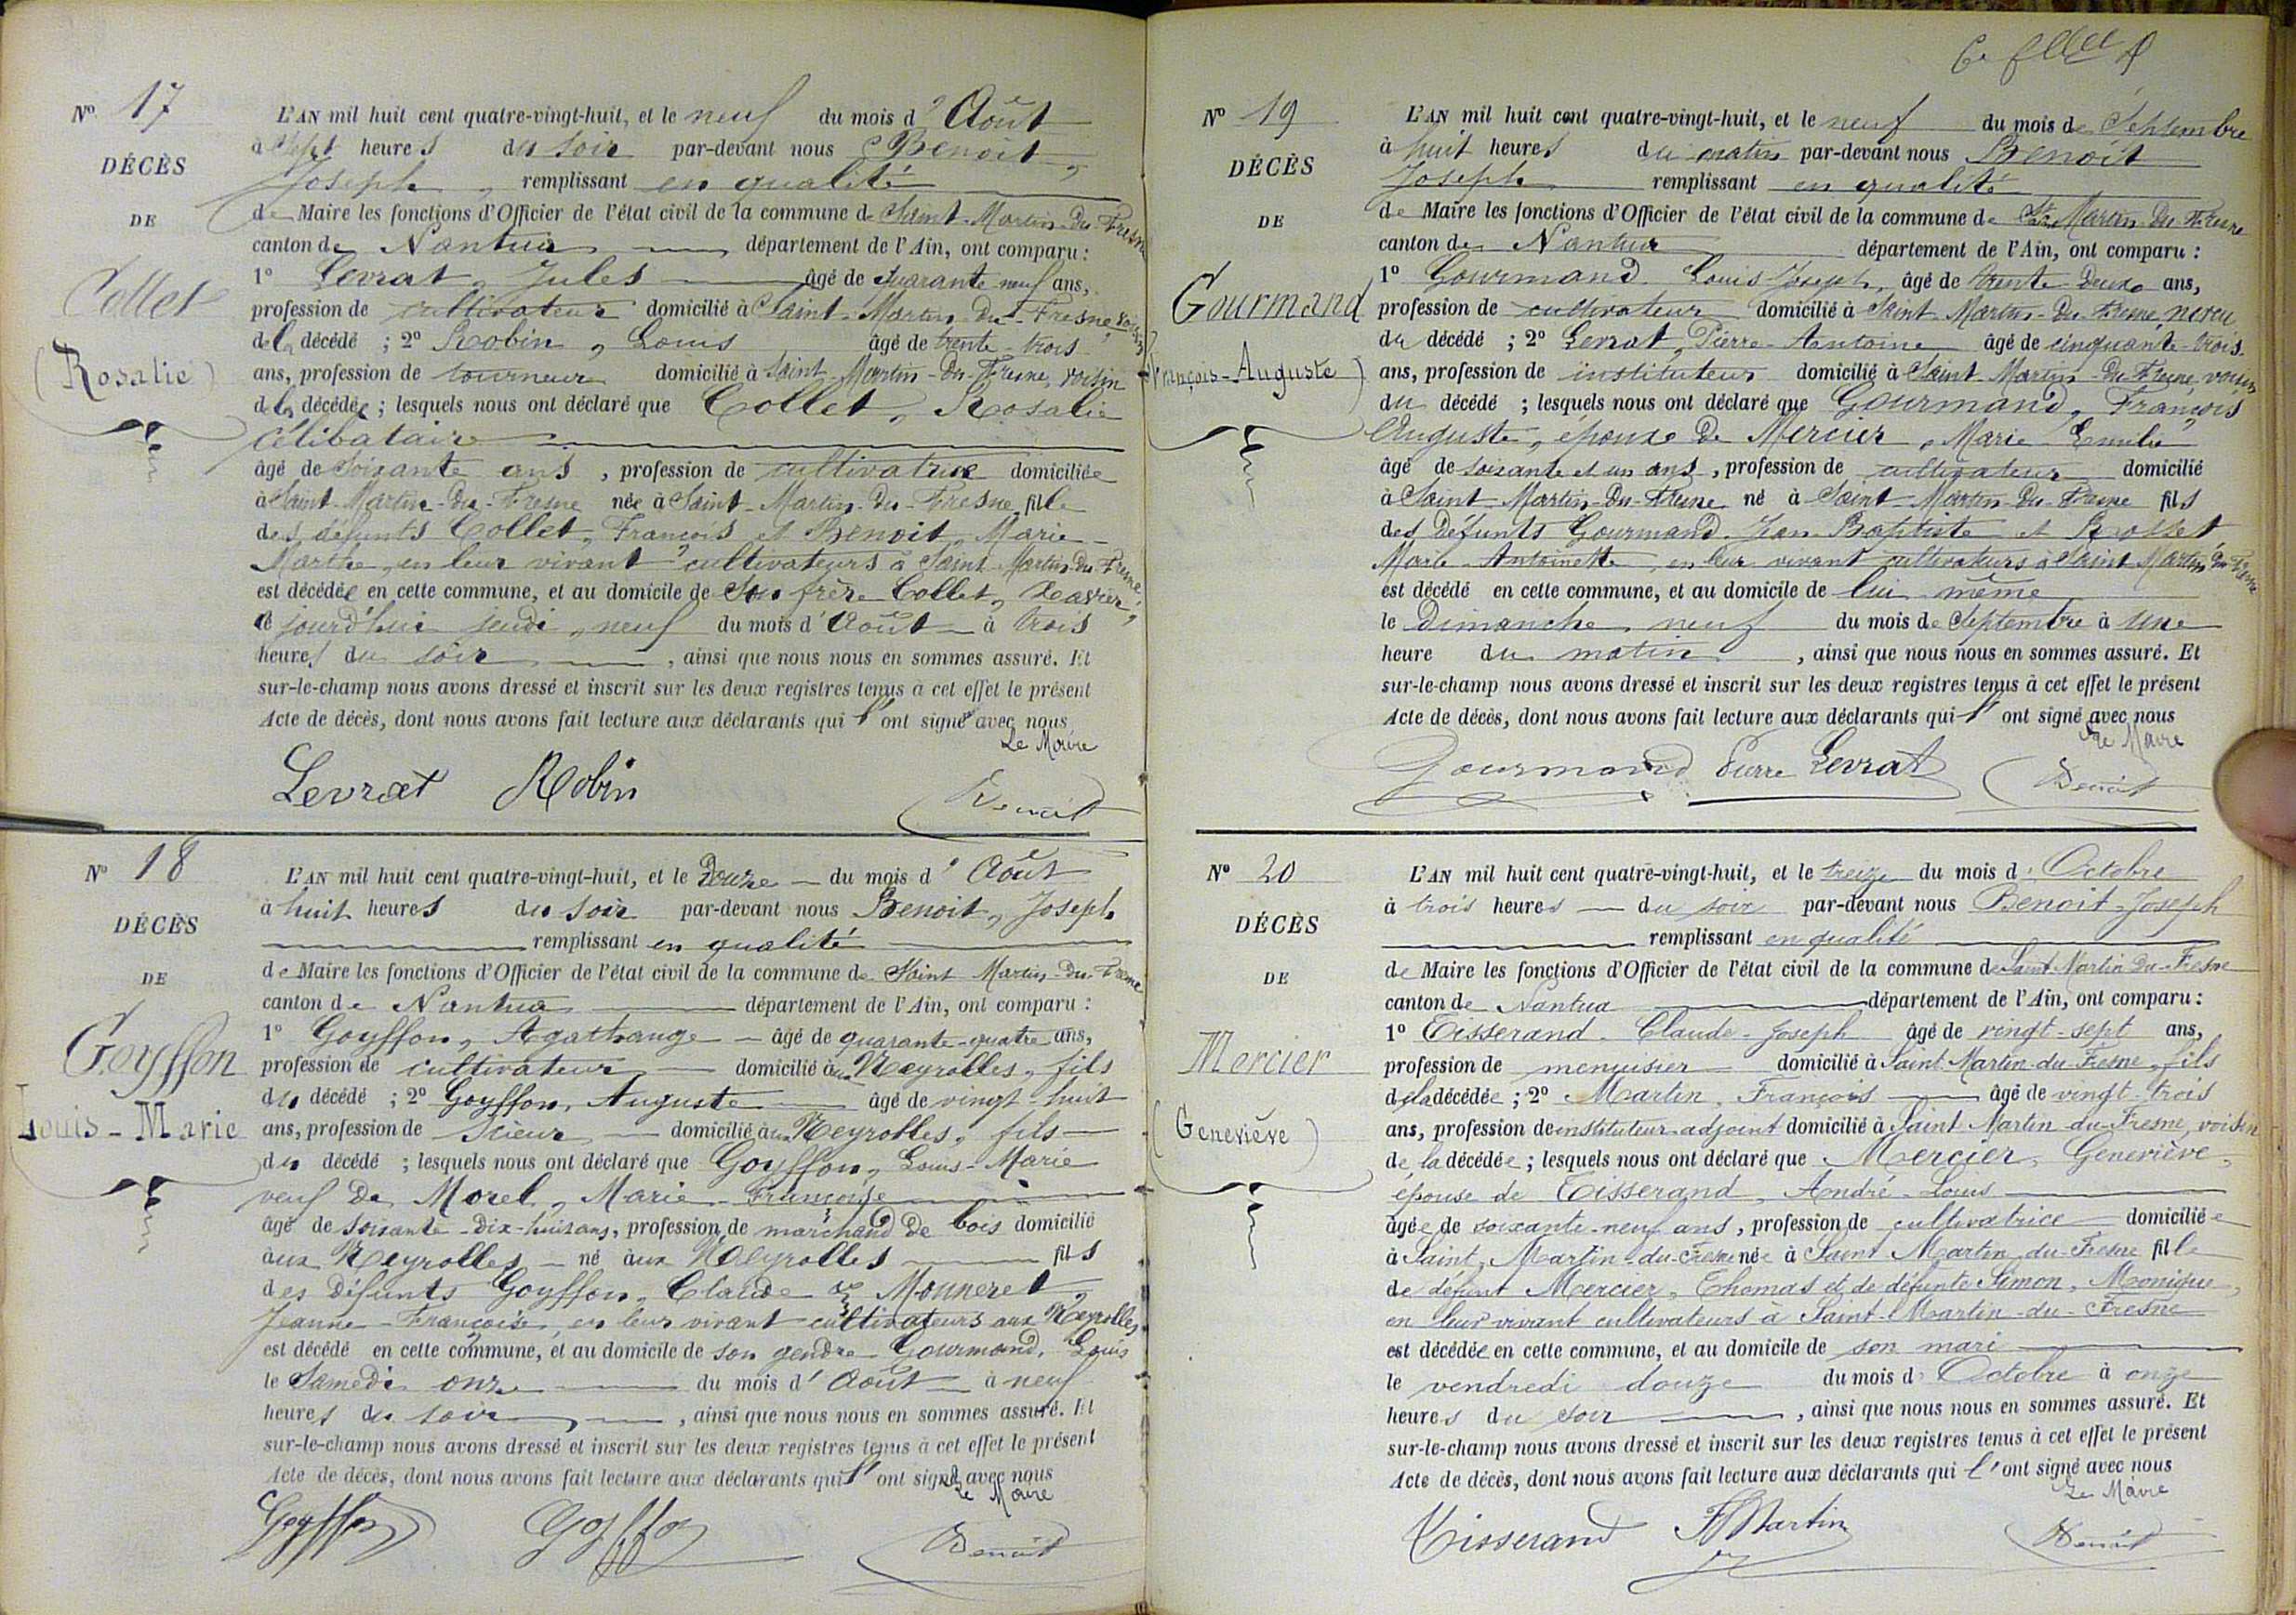 Nº 17
DÉCÈS
DE
Collet
(Rosalie)
L'AN mil huit cent quatre-vingt-huit, et le neuf du mois d'Août
à sept heures du soir par-devant nous Benoit,
Joseph, remplissant en qualité
de Maire les fonctions d'Officier de l'état civil de la commune de Saint-Martin-du-Fresne
canton de Nantua département de l'Ain, ont comparu :
1º Levrat, Jules âgé de quarante-neuf ans,
profession de cultivateur domicilié à Saint-Martin-du-Fresne, voisin
de la décédé ; 2º Robin, Louis âgé de trente-trois
ans, profession de tourneur domicilié à Saint-Martin-du-Fresne, voisin
de la décédée ; lesquels nous ont déclaré que Collet, Rosalie
célibataire
âgé de soixante ans, profession de cultivatrice domiciliée
à Saint-Martin-du-Fresne née à Saint-Martin-du-Fresne fille
des défunts Collet, François et Benoit, Marie-
Marthe, en leur vivant cultivateurs à Saint-Martin-du-Fresne,
est décédée en cette commune, et au domicile de son frère Collet, Xavier,
ce jourd'hui jeudi, neuf du mois d'Août à trois
heures du soir, ainsi que nous nous en sommes assuré. Et
sur-le-champ nous avons dressé et inscrit sur les deux registres tenus à cet effet le présent
Acte de décès, dont nous avons fait lecture aux déclarants qui l'ont signé avec nous
Le Maire
Levrat Robin Benoit
Nº 18
DÉCÈS
DE
Goyffon
Louis-Marie
L'AN mil huit cent quatre-vingt-huit, et le douze du mois d'Août
à huit heures du soir par-devant nous Benoit, Joseph
remplissant en qualité
de Maire les fonctions d'Officier de l'état civil de la commune de Saint-Martin-du-Fresne
canton de Nantua département de l'Ain, ont comparu :
1º Goyffon, Agathange âgé de quarante-quatre ans,
profession de cultivateur domicilié aux Neyrolles, fils
du décédé ; 2º Goyffon, Auguste âgé de vingt-huit
ans, profession de scieur domicilié aux Neyrolles, fils
du décédé ; lesquels nous ont déclaré que Goyffon, Louis-Marie
veuf de Morel, Marie-Françoise
âgé de soixante-dix-huit ans, profession de marchand de bois domicilié
aux Neyrolles né aux Neyrolles fils
des défunts Goyffon, Claude & Monneret,
Jeanne-Françoise, en leur vivant cultivateurs aux Neyrolles,
est décédé en cette commune, et au domicile de son gendre Gourmand, Louis
le Samedi onze du mois d'Août à neuf
heures du soir, ainsi que nous nous en sommes assuré. Et
sur-le-champ nous avons dressé et inscrit sur les deux registres tenus à cet effet le présent
Acte de décès, dont nous avons fait lecture aux déclarants qui l'ont signé avec nous
Le Maire
Goyffon Goyffon Benoit
Nº 19
DÉCÈS
DE
Gourmand
(François-Auguste)
L'AN mil huit cent quatre-vingt-huit, et le neuf du mois de Septembre
à huit heures du matin par-devant nous Benoit
Joseph remplissant en qualité
de Maire les fonctions d'Officier de l'état civil de la commune de St Martin-du-Fresne
canton de Nantua département de l'Ain, ont comparu :
1º Gourmand Louis Joseph, âgé de trente-deux ans,
profession de cultivateur domicilié à Saint-Martin-du-Fresne, neveu
du décédé ; 2º Levrat, Pierre-Antoine âgé de cinquante-trois
ans, profession de instituteur domicilié à Saint-Martin-du-Fresne, voisin
du décédé ; lesquels nous ont déclaré que Gourmand, François
Auguste, époux de Mercier, Marie Emilie
âgé de soixante et un ans, profession de cultivateur domicilié
à Saint-Martin-du-Fresne né à Saint-Martin-du-Fresne fils
des défunts Gourmand Jean-Baptiste et Brosset
Marie-Antoinette, en leur vivant cultivateurs à Saint Martin-du-Fresne
est décédé en cette commune, et au domicile de lui-même
le Dimanche, neuf du mois de Septembre à une
heure du matin, ainsi que nous nous en sommes assuré. Et
sur-le-champ nous avons dressé et inscrit sur les deux registres tenus à cet effet le présent
Acte de décès, dont nous avons fait lecture aux déclarants qui l'ont signé avec nous
Le Maire
Gourmand Pierre Levrat Benoit
Nº 20
DÉCÈS
DE
Mercier
(Geneviève)
L'AN mil huit cent quatre-vingt-huit, et le treize du mois d'Octobre
à trois heures du soir par-devant nous Benoit-Joseph
remplissant en qualité
de Maire les fonctions d'Officier de l'état civil de la commune de Saint-Martin-du-Fresne
canton de Nantua département de l'Ain, ont comparu :
1º Tisserand Claude-Joseph âgé de vingt-sept ans,
profession de menuisier domicilié à Saint-Martin-du-Fresne, fils
de la décédée ; 2º Martin, François âgé de vingt-trois
ans, profession de instituteur-adjoint domicilié à Saint Martin du-Fresne, voisin
de la décédée ; lesquels nous ont déclaré que Mercier, Geneviève,
épouse de Tisserand, André-Louis
âgée de soixante-neuf ans, profession de cultivatrice domiciliée
à Saint-Martin-du-Fresne née à Saint Martin-du-Fresne fille
de défunt Mercier, Thomas et de défunte Simon, Monique,
en leur vivant cultivateurs à Saint-Martin-du-Fresne
est décédée en cette commune, et au domicile de son mari
le vendredi douze du mois d'Octobre à onze
heures du soir, ainsi que nous nous en sommes assuré. Et
sur-le-champ nous avons dressé et inscrit sur les deux registres tenus à cet effet le présent
Acte de décès, dont nous avons fait lecture aux déclarants qui l'ont signé avec nous
Le Maire
Tisserand F Martin Benoit